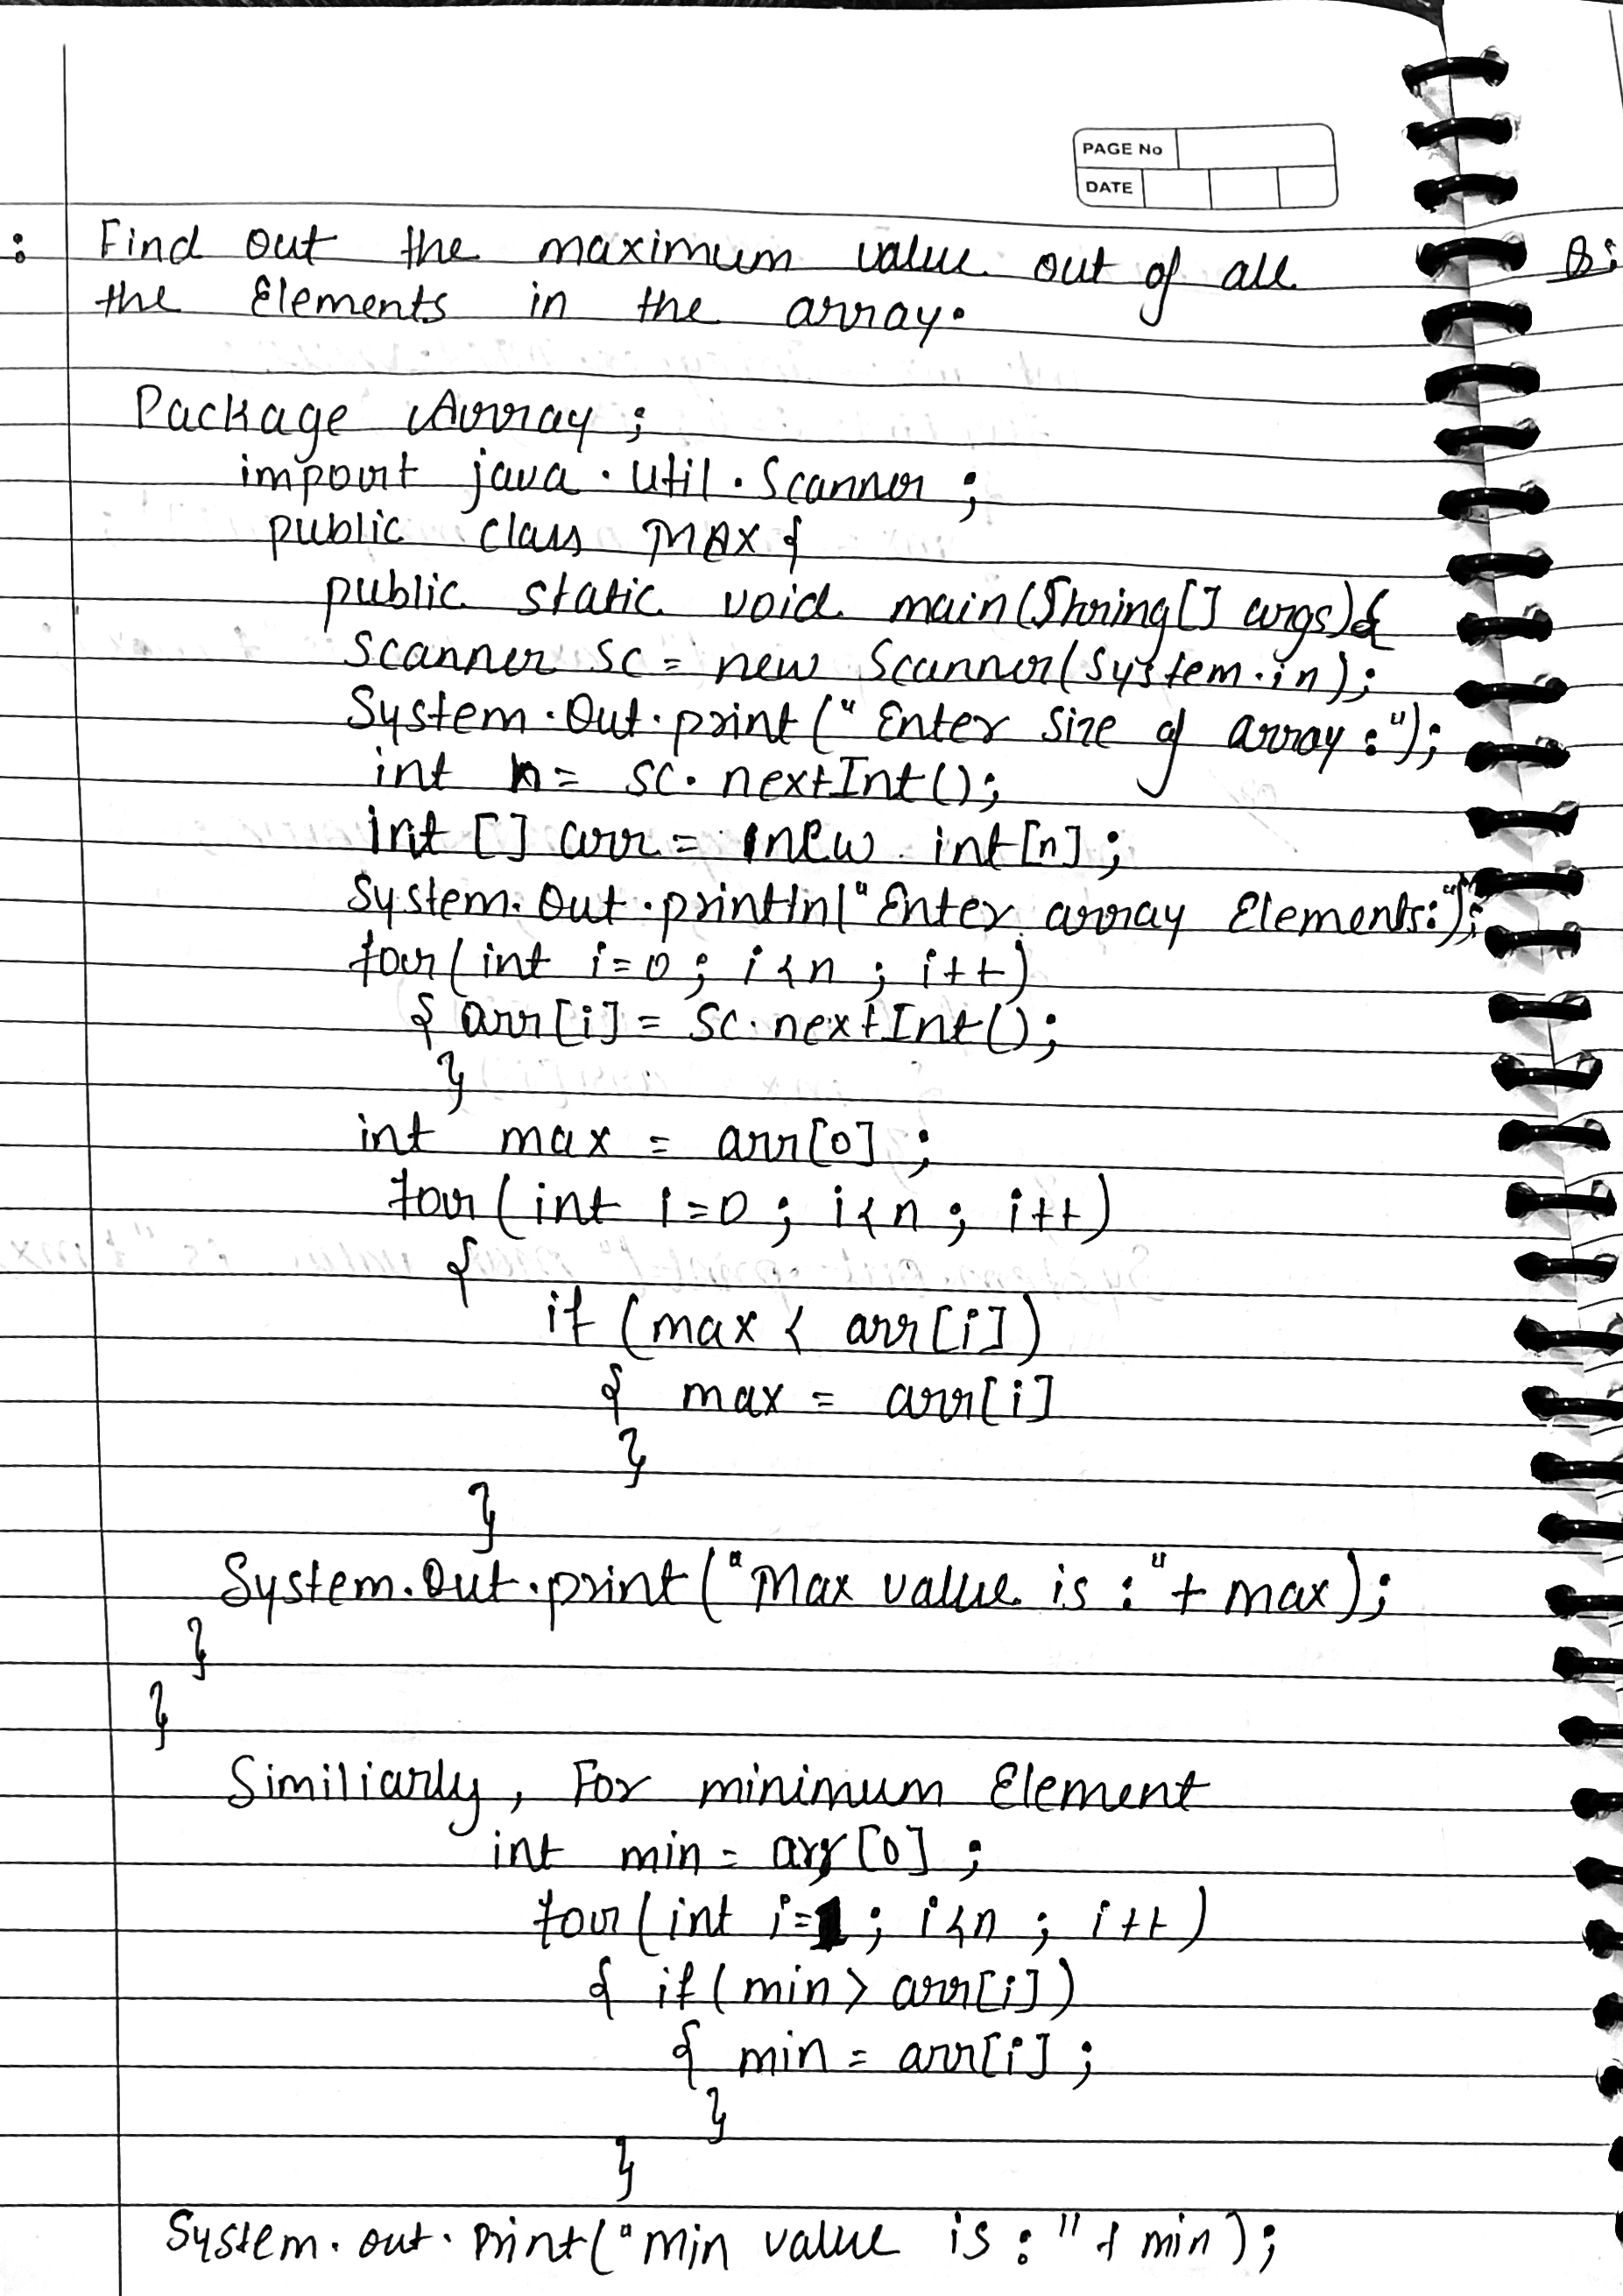 PAGE No
DATE
: Find out the maximum value out of all
the Elements in the array.
Package Array ;
import java.util.Scanner ;
public class MAX {
public static void main(String[] args){
Scanner sc = new Scanner(System.in);
System.Out.print(" Enter size of array :");
int n = sc.nextInt();
int [] arr = new int[n] ;
System.Out.println("Enter array Elements:");
for(int i=0 ; i<n ; i++)
{ arr[i] = sc.nextInt();
}
int max = arr[0] ;
for(int i=0 ; i<n ; i++)
{
if (max < arr[i])
{ max = arr[i]
}
}
System.Out.print("Max value is :"+ max);
}
}
Similiarly, For minimum Element
int min = arr[0] ;
for(int i=1 ; i<n ; i++)
{ if(min > arr[i])
{ min = arr[i] ;
}
}
System.out.Print("min value is : "+ min);
Q: